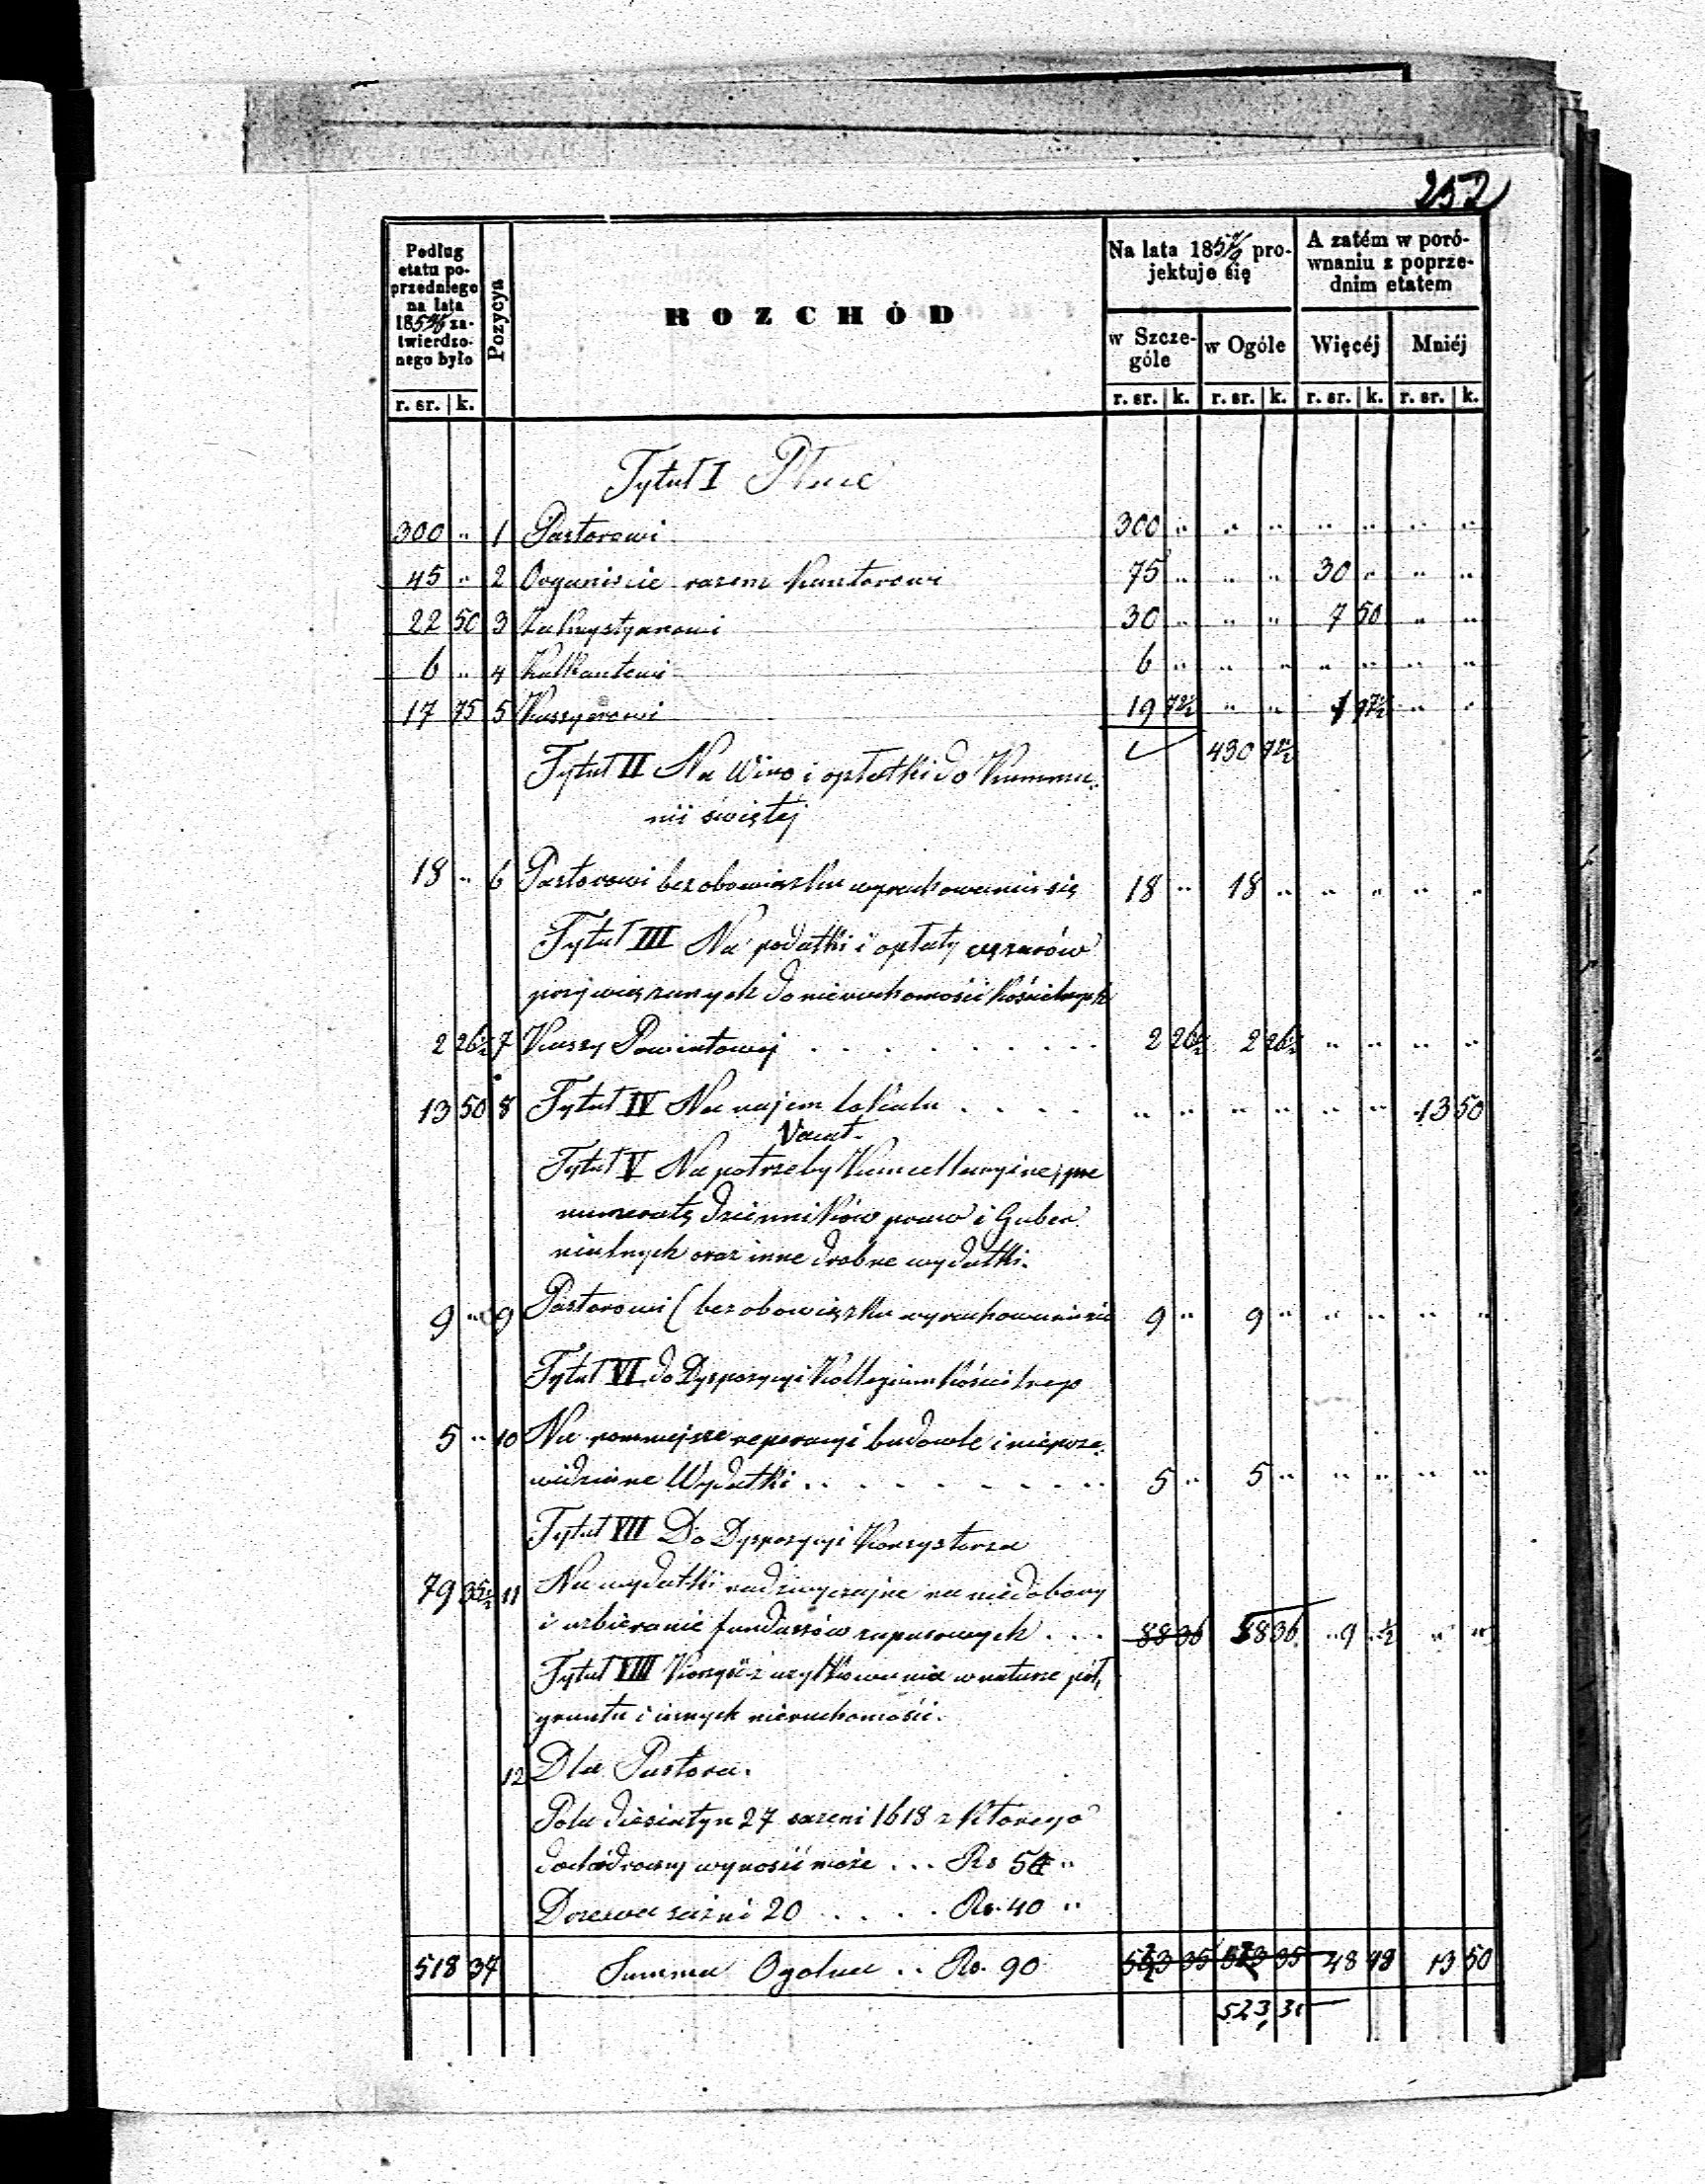 252
Podług etatu poprzedniego na lata 185 4/6 zatwierdzonego było
Pozycya
ROZCHÓD
Na lata 185 7/9 projektuje się
A zatém w porównaniu z poprzednim etatem
w Szczególe
w Ogóle
Więcéj
Mniéj
r. sr. k. r. sr. k. r. sr. k. r. sr. k. r. sr. k.
Tytuł I Płace
300 " 1 Pastorowi 300 " " " " " " "
45 " 2 Organiście razem Kantorowi 75 " " " 30 " " "
22 50 3 Zakrystyanowi 30 " " " 7 50 " "
6 " 4 Kalkantowi 6 " " " " " " "
17 75 5 Kassyerowi 19 72½ " " 1 97½ " "
430 72½
Tytuł II Na Wino i opłatki do Kummu-
nii świętej
18 " 6 Pastorowi bez obowiązku wyrachowania się 18 " 18 " " " " "
Tytuł III Na podatki i opłaty ciężarów
przywiązanych do nieruchomości kościelnych
2 26½ 7 Kassy Powiatowej . . . . . . . . . 2 26½ 2 26½ " " " "
13 50 8 Tytuł IV Na najem lokalu . . . . " " " " " " 13 50
Vacat.
Tytuł V Na potrzeby Kancellaryine, pre
numeratę dzienników praw i Guber
nialnych oraz inne drobne wydatki.
9 " 9 Pastorowi (bez obowiązku wyrachowania się 9 " 9 " " " " "
Tytuł VI do Dyspozycyi Kollegium kościelnego
5 " 10 Na pomniejsze reperacyi budowle i nieprze-
widziane Wydatki . . . . . . . . . 5 " 5 " " " " "
Tytuł VII Do Dyspozycyi Konsystorza
79 35½ 11 Na wydatki nadzwyczajne na niedobory
i uzbieranie funduszów zapasowych . . . 88 36 88 36 " 9 " ½ " "
Tytuł VIII Korzyść z użytkowania w naturze pól,
gruntu i innych nieruchomości.
12 Dla Pastora.
Pola diesiatyn 27 sażeni 1618 z którego
dochód roczny wynosić może . . . Rs 50 "
Drzewa sażni 20 . . . . . Rs. 40 "
518 37 Summa Ogolna . . Rs. 90 523 35 523 35 48 48 13 50
523 35